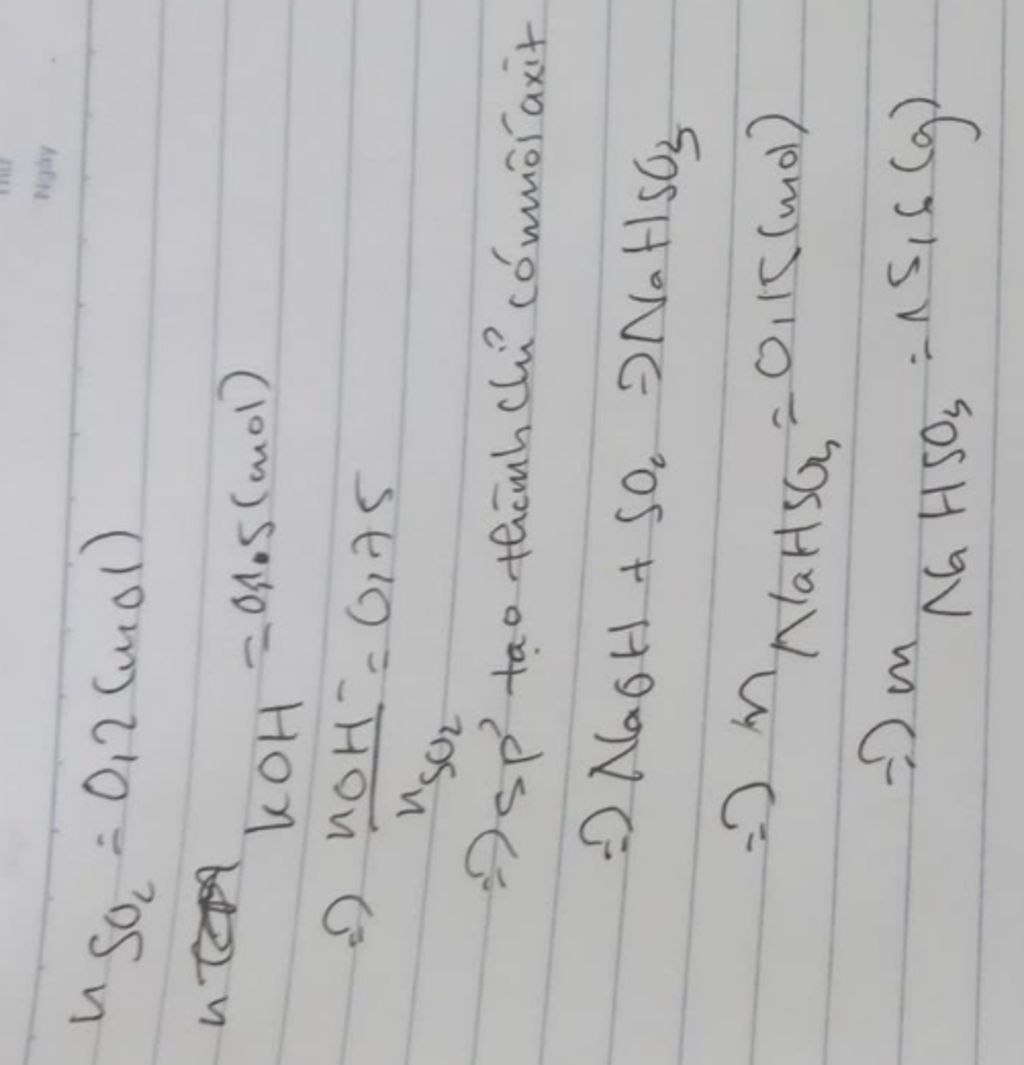 Thứ
Ngày
n SO2 = 0,2 (mol)
n KOH = 0,15 (mol)
=) nOH⁻ / nSO2 = 0,75
=) sp' tạo thành chỉ có muối axit
=) NaOH + SO2 =) NaHSO3
=) n NaHSO3 = 0,15 (mol)
=) m NaHSO3 = 15,6 (g)